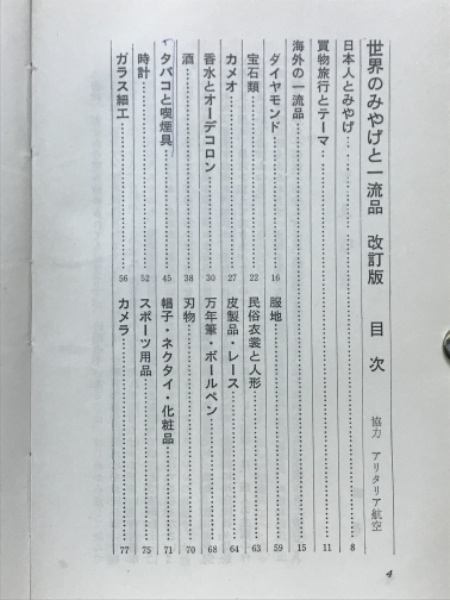 世界のみやげと一流品 改訂版 目次 協力 アリタリア航空
日本人とみやげ……8
買物旅行とテーマ……11
海外の一流品……15
ダイヤモンド……16
宝石類……22
カメオ……27
香水とオーデコロン……30
酒……38
タバコと喫煙具……45
時計……52
ガラス細工……56
服地……59
民俗衣裳と人形……63
皮製品・レース……64
万年筆・ボールペン……68
刃物……70
帽子・ネクタイ・化粧品……71
スポーツ用品……75
カメラ……77
4